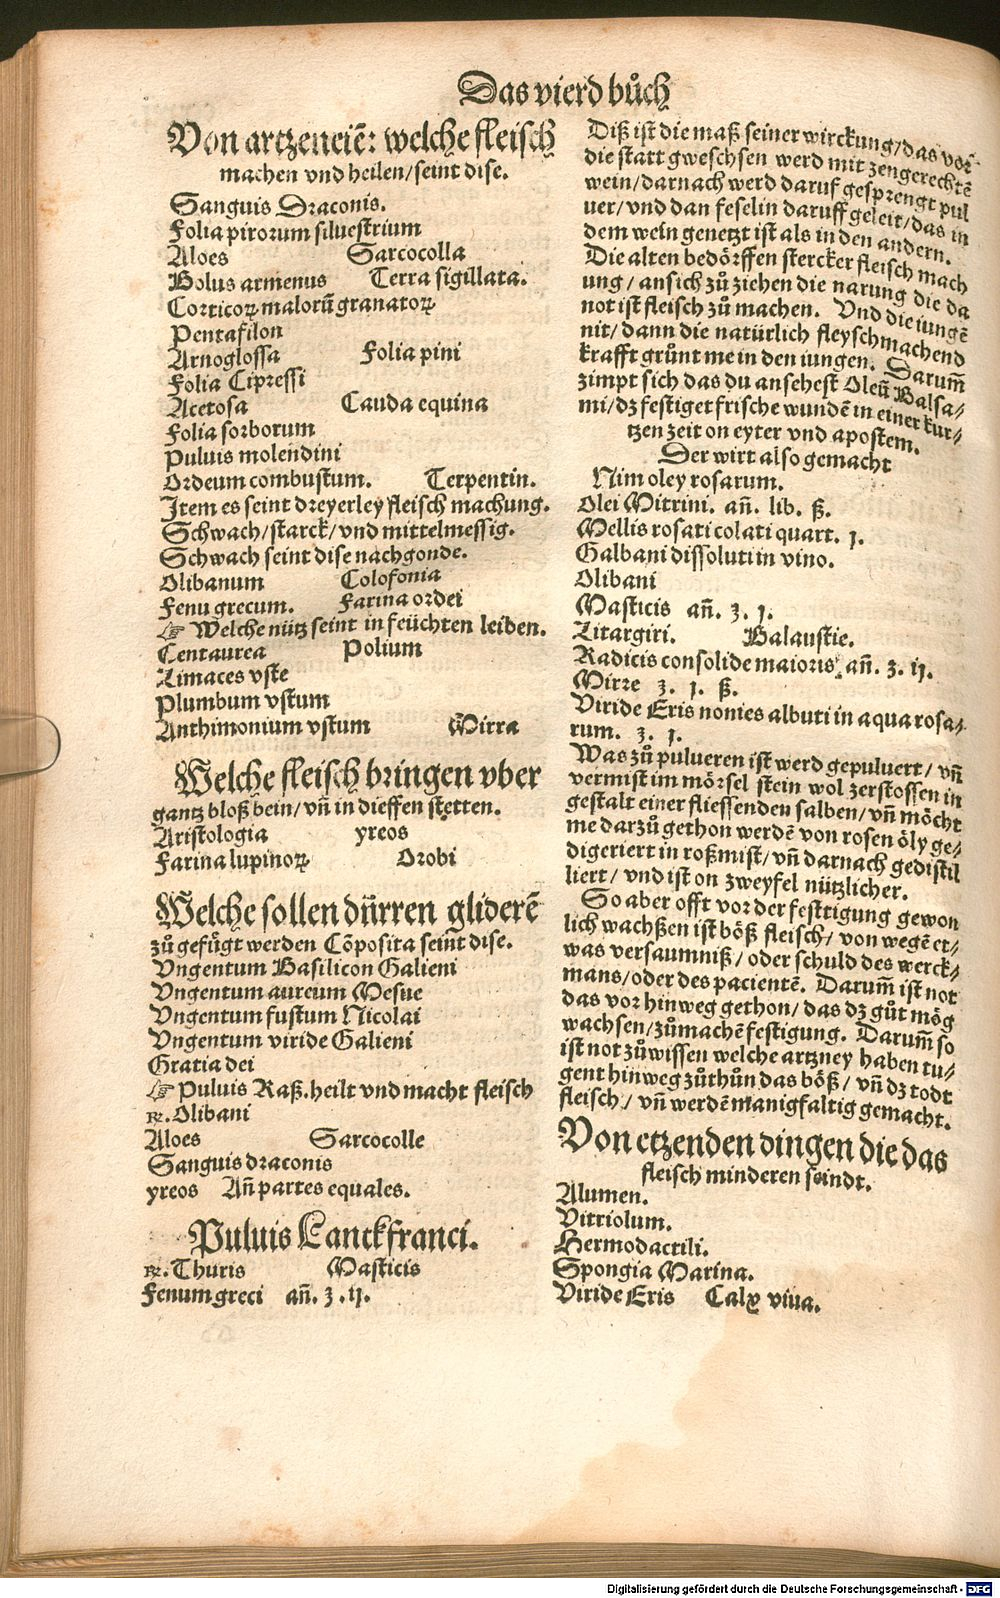 Das vierd bůch
Von artzeneiē: welche fleisch
machen vnd heilen/seint dise.
Sanguis Draconis.
Folia pirorum siluestrium
Aloes Sarcocolla
Bolus armenus Terra sigillata.
Corticoꝝ malorū granatoꝝ
Pentafilon
Arnoglossa Folia pini
Folia Cipressi
Acetosa Cauda equina
Folia sorborum
Puluis molendini
Ordeum combustum. Terpentin.
Item es seint dreyerley fleisch machung.
Schwach/starck/vnd mittelmessig.
Schwach seint dise nachgonde.
Olibanum Colofonia
Fenu grecum. Farina ordei
☞ Welche nütz seint in feüchten leiben.
Centaurea Polium
Limaces vste
Plumbum vstum
Anthimonium vstum Mirra
Welche fleisch bringen vber
gantz bloß bein/vn̄ in dieffen stetten.
Aristologia yreos
Farina lupinoꝝ Orobi
Welche sollen dürren gliderē
zů gefůgt werden Cōposita seint dise.
Vngentum Basilicon Galieni
Vngentum aureum Mesue
Vngentum fustum Nicolai
Vngentum viride Galieni
Gratia dei
☞ Puluis Raß.heilt vnd macht fleisch
℞.Olibani
Aloes Sarcocolle
Sanguis draconis
yreos An̄ partes equales.
Puluis Lanckfranci.
℞.Thuris Masticis
Fenumgreci an̄. ʒ.ij.
Diß ist die maß seiner wirckung/das vor
die statt gweschsen werd mit zengerechtē
wein/darnach werd daruf gesprengt pul
uer/vnd dan feselin daruff geleit/das in
dem wein genetzt ist als in den andern.
Die alten bedörffen stercker fleisch mach
ung/an sich zů ziehen die narung die da
not ist fleisch zů machen. Vnd die iungē
nit/dann die natürlich fleyschmachend
krafft grůnt me in den iungen. Darum̄
zimpt sich das du ansehest Oleū Balsa-/
mi/dz festiget frische wundē in einer kur-/
tzen zeit on eyter vnd apostem.
Der wirt also gemacht
Nim oley rosarum.
Olei Mitrini. an̄. lib. ß.
Mellis rosati colati quart. j.
Galbani dissoluti in vino.
Olibani
Masticis an̄. ʒ. j.
Litargiri. Balaustie.
Radicis consolide maioris. an̄. ʒ. ij.
Mirre ʒ. j. ß.
Viride Eris nonies albuti in aqua rosa-/
rum. ʒ. j.
Was zů pulueren ist werd gepuluert/vn̄
vermist im mörsel stein wol zerstossen in
gestalt einer fliessenden salben/vn̄ möcht
me darzů gethon werdē von rosen öly ge-/
digeriert in roßmist/vn̄ darnach gedistil
liert/vnd ist on zweyfel nützlicher.
So aber offt vor der festtigung gewon
lich wachßen ist böß fleisch/von wegē et-/
was versaumniß/oder schuld des werck-/
mans/oder des pacientē. Darum̄ ist not
das vor hinweg gethon/das dz gůt mög
wachsen/zůmachē festigung. Darum̄ so
ist not zůwissen welche artzney haben tu-/
gent hinweg zůthůn das böß/vn̄ dz todt
fleisch/vn̄ werdē manigfaltig gemacht.
Von etzenden dingen die das
fleisch minderen seindt.
Alumen.
Vitriolum.
Hermodactili.
Spongia Marina.
Viride Eris Calx viua.
Digitalisierung gefördert durch die Deutsche Forschungsgemeinschaft - DFG